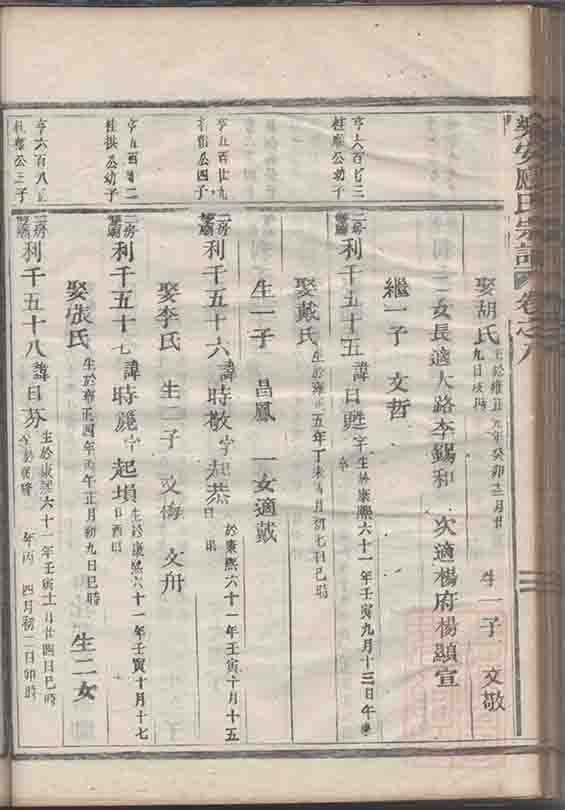 樂安應氏宗譜 卷之八
娶胡氏 生於雍正元年癸卯十二月廿九日戌時 生一子 文敬
二女長適大路李錫和 次適楊府楊顯宣
繼一子 文哲
亨六百七三
桂 公幼子
二房 利千五十五 諱日甦 字 生於康熙六十一年壬寅九月十三日午
娶戴氏 生於雍正五年丁未 月初七日巳時
生一子 昌鳳 一女適戴
亨五百廿九
公四子
二房 利千五十六 諱時敬 字起恭 於康熙六十一年壬寅十月十五日
娶李氏 生二子 文海 文舟
亨五百 二
桂 公幼子
二房 利千五十七 諱時麗 字起塤 生於康熙六十一年壬寅十月十七日酉時
娶張氏 生於雍正四年丙午正月初九日巳時 生二女
亨六百八
公三子
二房 利千五十八 諱日芬 生於康熙六十一年壬寅十 月廿四日巳時
年丙 四月初二日卯時